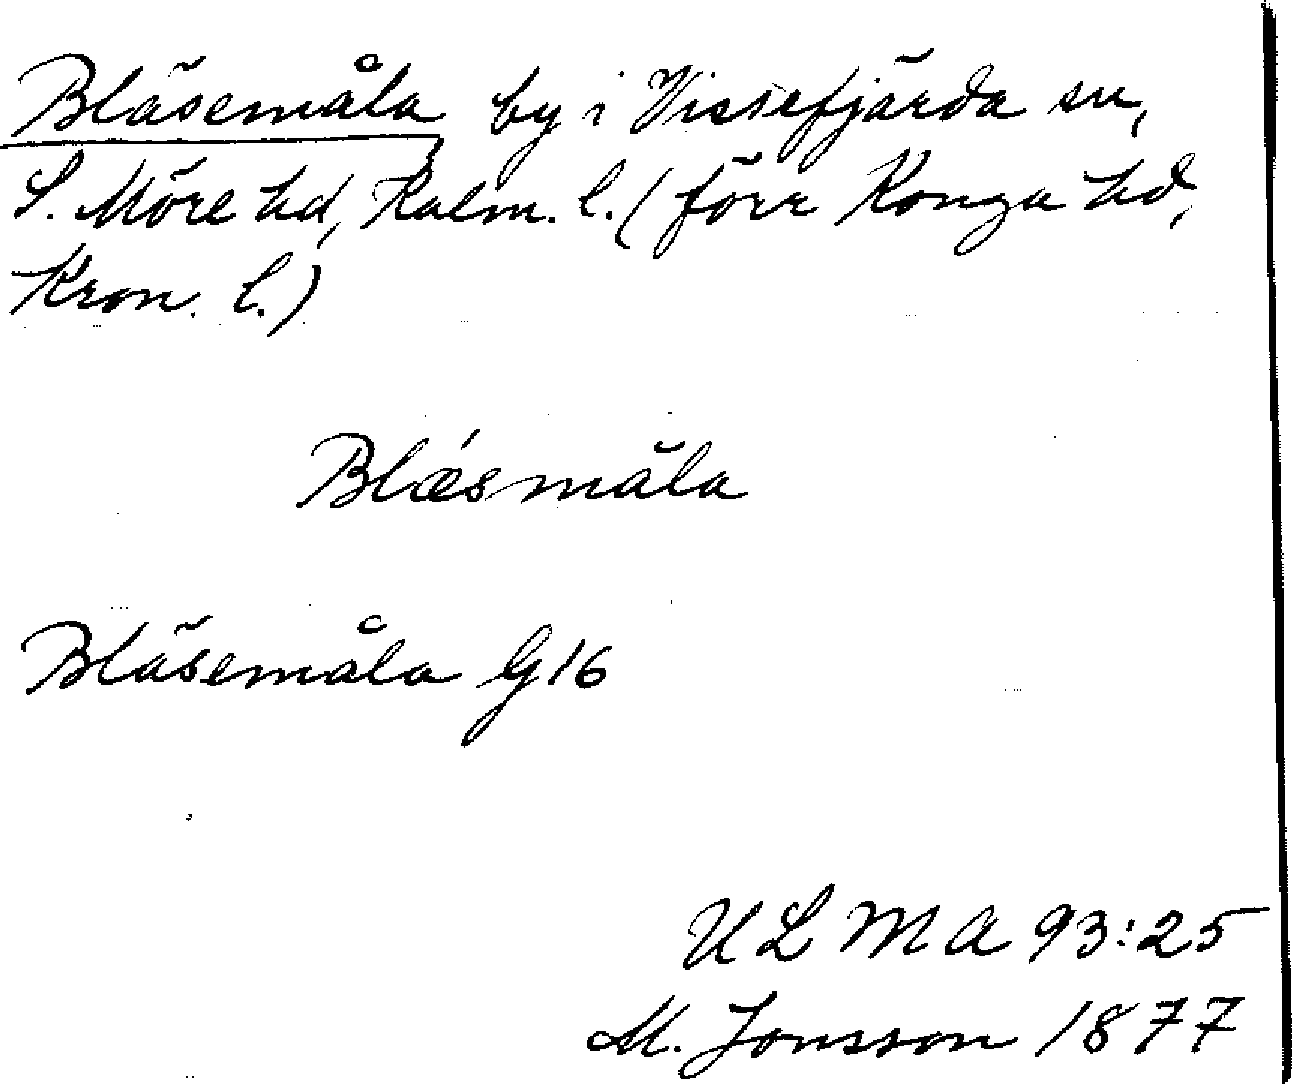 Bläsemåla by i Vissefjärda sn,
S. Möre hd, Kalm. l. (förr Konga hd,
Kron. l.)
Blǽsmåla
Bläsemåla G16
ULMA 93:25
M. Jonsson 1877